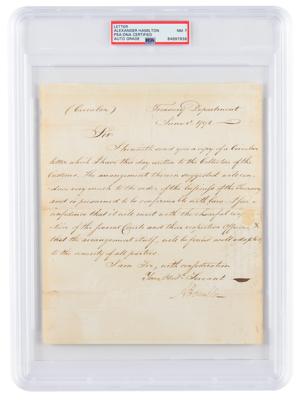 LETTER
ALEXANDER HAMILTON
PSA/DNA CERTIFIED
AUTO GRADE
NM 7
(Circular)
Treasury Department
June 1792
Sir
I herewith send you a copy of a Circular
letter which I have this day written to the Collectors of the
Customs. The arrangement therein suggested will con
duce very much to the order of the business of the Treasury
and is presumed to be conformable with Law. I
confidence that it will meet with the chearful
of the several Courts and their respective Officers,
that the arrangement itself, will be found well adapted
to the of all parties.
I am Sir, with consideration
Your Obedt Servant
A Hamilton